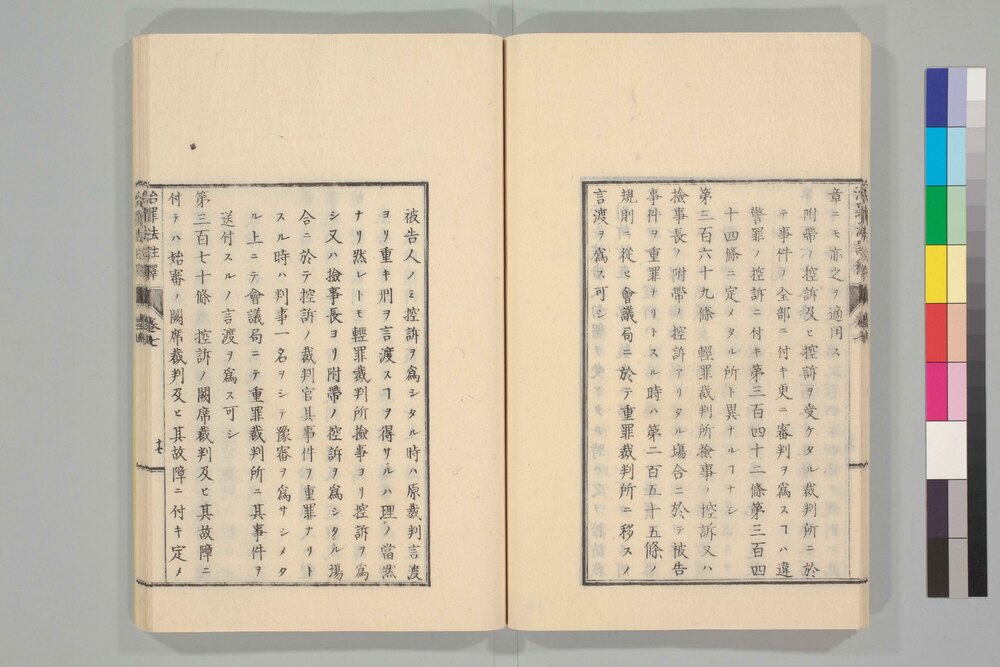 章ニモ亦之ヲ適用ス
附帶ノ控訴及ヒ控訴ヲ受ケタル裁判所ニ於
テ事件ノ全部ニ付キ更ニ審判ヲ爲スヿハ違
警罪ノ控訴ニ付キ第三百四十二條第三百四
十四條ニ定メタル所ト異ナルヿナシ
第三百六十九條 輕罪裁判所撿事ノ控訴又ハ
撿事長ノ附帶ノ控訴アリタル塲合ニ於テ被告
事件ヲ重罪ナリトスル時ハ第二百五十五條ノ
規則ニ從ヒ會議局ニ於テ重罪裁判所ニ移スノ
言渡ヲ爲ス可シ
被告人ノミ控訴ヲ爲シタル時ハ原裁判言渡
ヨリ重キ刑ヲ言渡スヿヲ得サルハ理ノ當然
ナリ然レトモ輕罪裁判所撿事ヨリ控訴ヲ爲
シ又ハ撿事長ヨリ附帶ノ控訴ヲ爲シタル塲
合ニ於テ控訴ノ裁判官其事件ヲ重罪ナリト
スル時ハ判事一名ヲシテ豫審ヲ爲サシメタ
ル上ニテ會議局ニテ重罪裁判所ニ其事件ヲ
送付スルノ言渡ヲ爲ス可シ
第三百七十條 控訴ノ闕席裁判及ヒ其故障ニ
付テハ始審ノ闕席裁判及ヒ其故障ニ付キ定メ
治罪法註釋 卷七